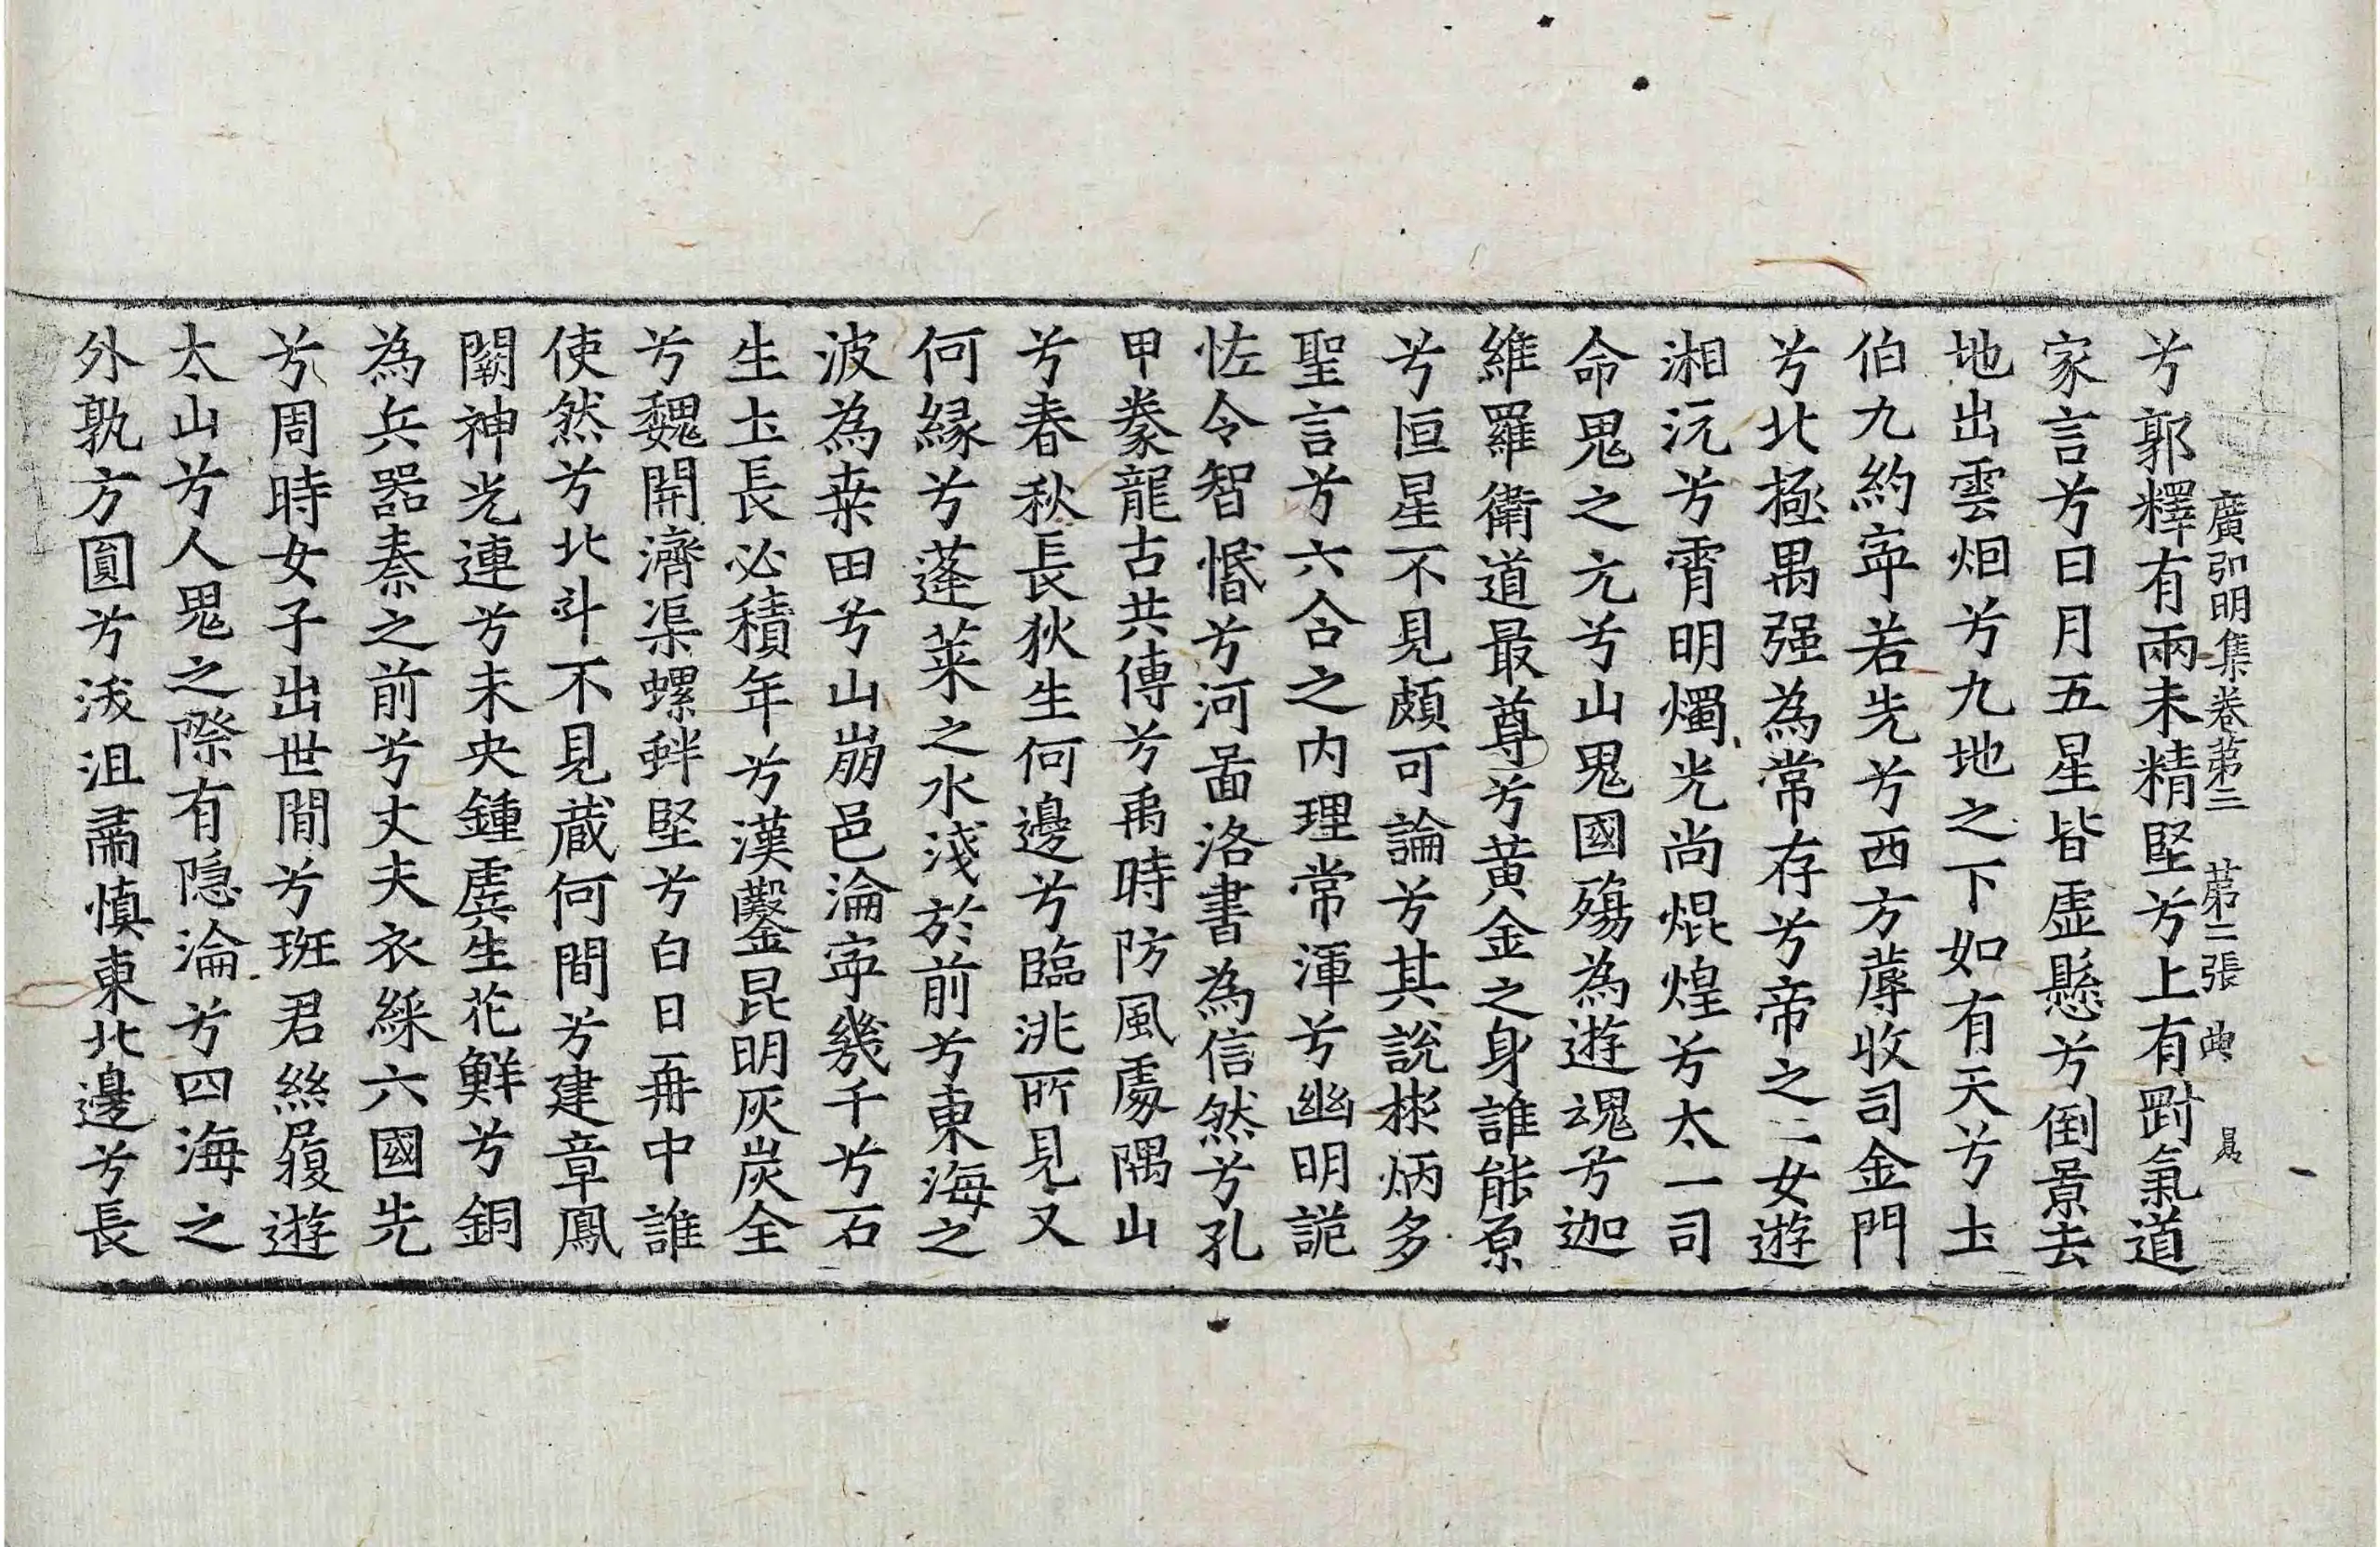 廣弘明集卷第三　第二張　典　㫤
兮郭釋有兩未精堅兮上有剛氣道
家言兮日月五星皆虛懸兮倒景去
地出雲烟兮九地之下如有天兮土
伯九約寕若先兮西方蓐收司金門
兮北極禺强為常存兮帝之二女遊
湘沅兮霄明燭光尚焜煌兮太一司
命鬼之元兮山鬼國殤為遊魂兮迦
維羅衛道最尊兮黄金之身誰能原
兮恒星不見頗可論兮其說彬炳多
聖言兮六合之内理常渾兮幽明詭
恠令智惽兮河啚洛書為信然兮孔
甲豢龍古共傳兮禹時防風處隅山
兮春秋長狄生何邊兮臨洮所見又
何縁兮蓬莱之水淺於前兮東海之
波為桒田兮山崩邑淪寕幾千兮石
生土長必積年兮漢鑿昆明灰炭全
兮魏開濟渠螺蚌堅兮白日再中誰
使然兮北斗不見藏何間兮建章鳳
闕神光連兮未央鍾虡生花鮮兮銅
為兵器秦之前兮丈夫衣綵六國先
兮周時女子出世間兮班君絲履遊
太山兮人鬼之際有隐淪兮四海之
外孰方圓兮沃沮肅慎東北邊兮長